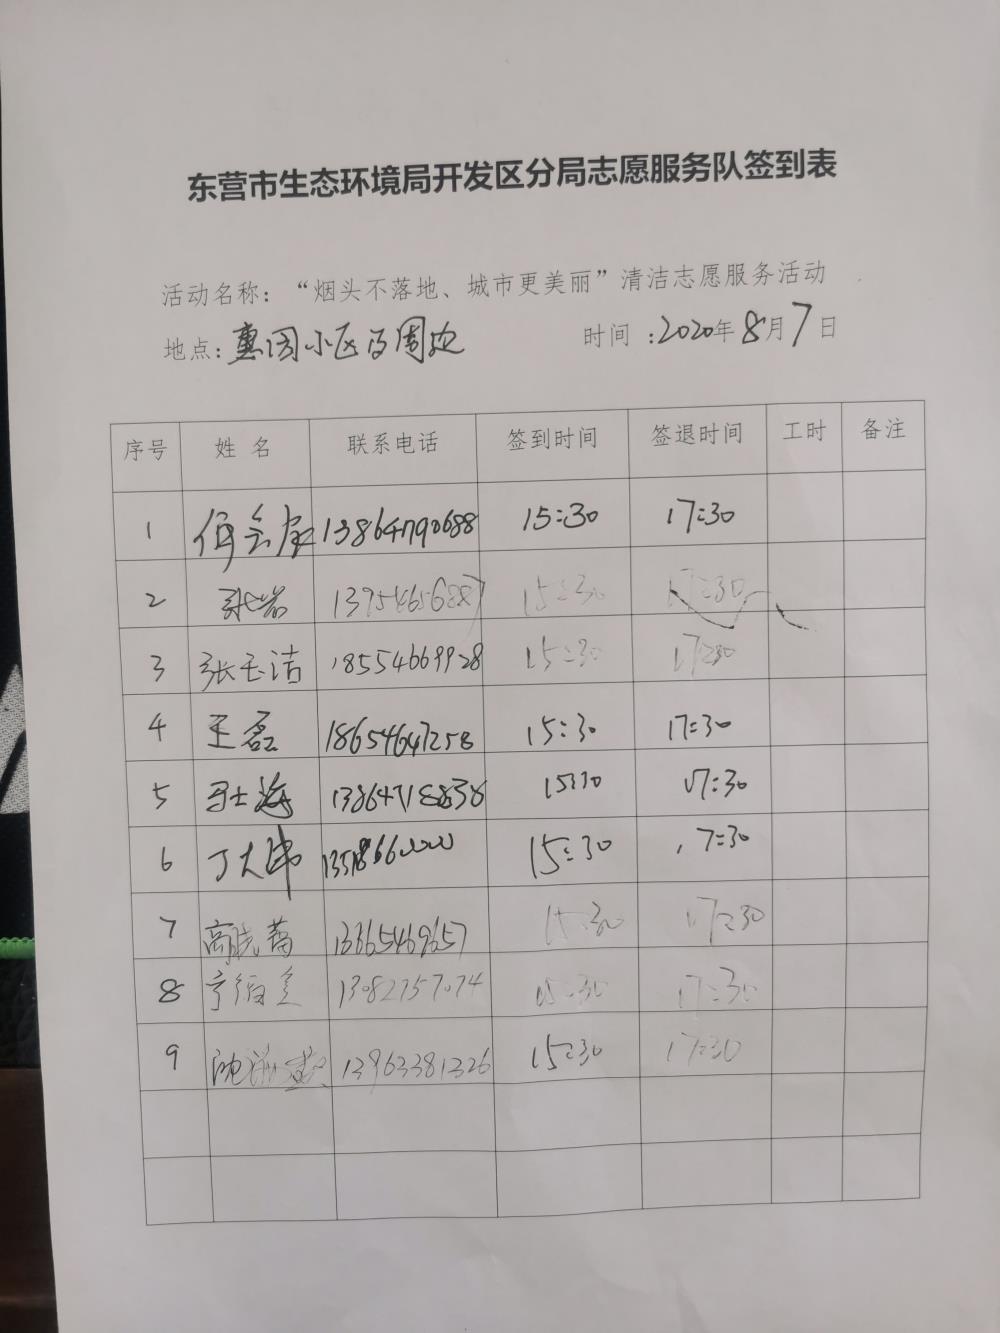 东营市生态环境局开发区分局志愿服务队签到表
活动名称：“烟头不落地、城市更美丽”清洁志愿服务活动
地点：惠园小区及周边 时间：2020年8月7日
序号 姓名 联系电话 签到时间 签退时间 工时 备注
1 13864790688 15:30 17:30
2 张岩 15:30 17:30
3 张玉洁 18554669928 15:30 17:30
4 王磊 18654647258 15:30 17:30
5 13864718838 15:30 17:30
6 丁大伟 15:30 17:30
7 高晓蕾 13365469657 15:30 17:30
8 15:30 17:30
9 13963381326 15:30 17:30